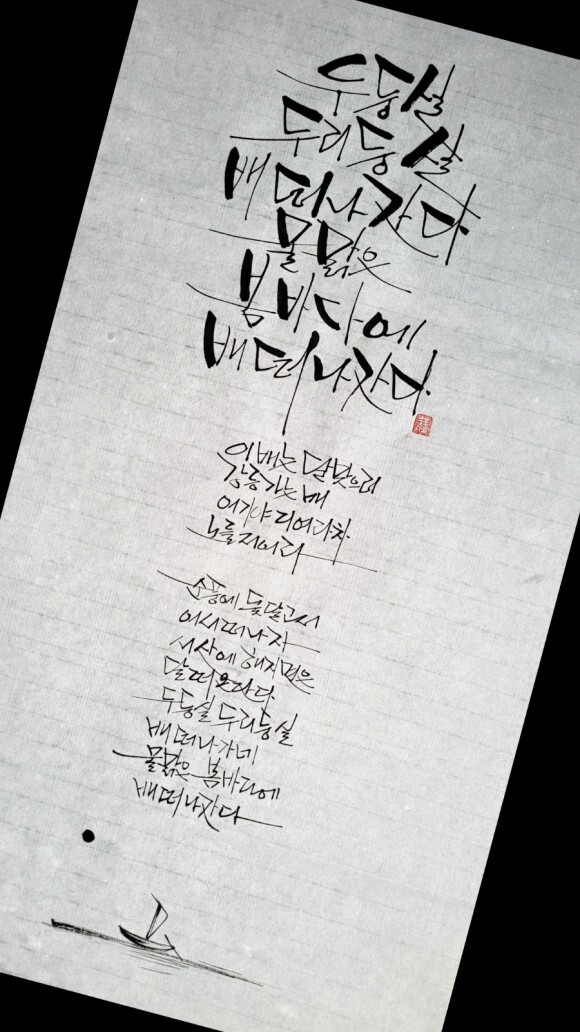 두둥실
두리둥실
배 떠나간다
물 맑은
봄바다에
배 떠나간다
이 배는 달맞으러
강릉 가는 배
어기야 디여라차
노를 저어라
순풍에 돛 달고서
어서 떠나자
서산에 해지면은
달 떠온단다
두둥실 두리둥실
배 떠나가네
물 맑은 봄바다에
배 떠나간다